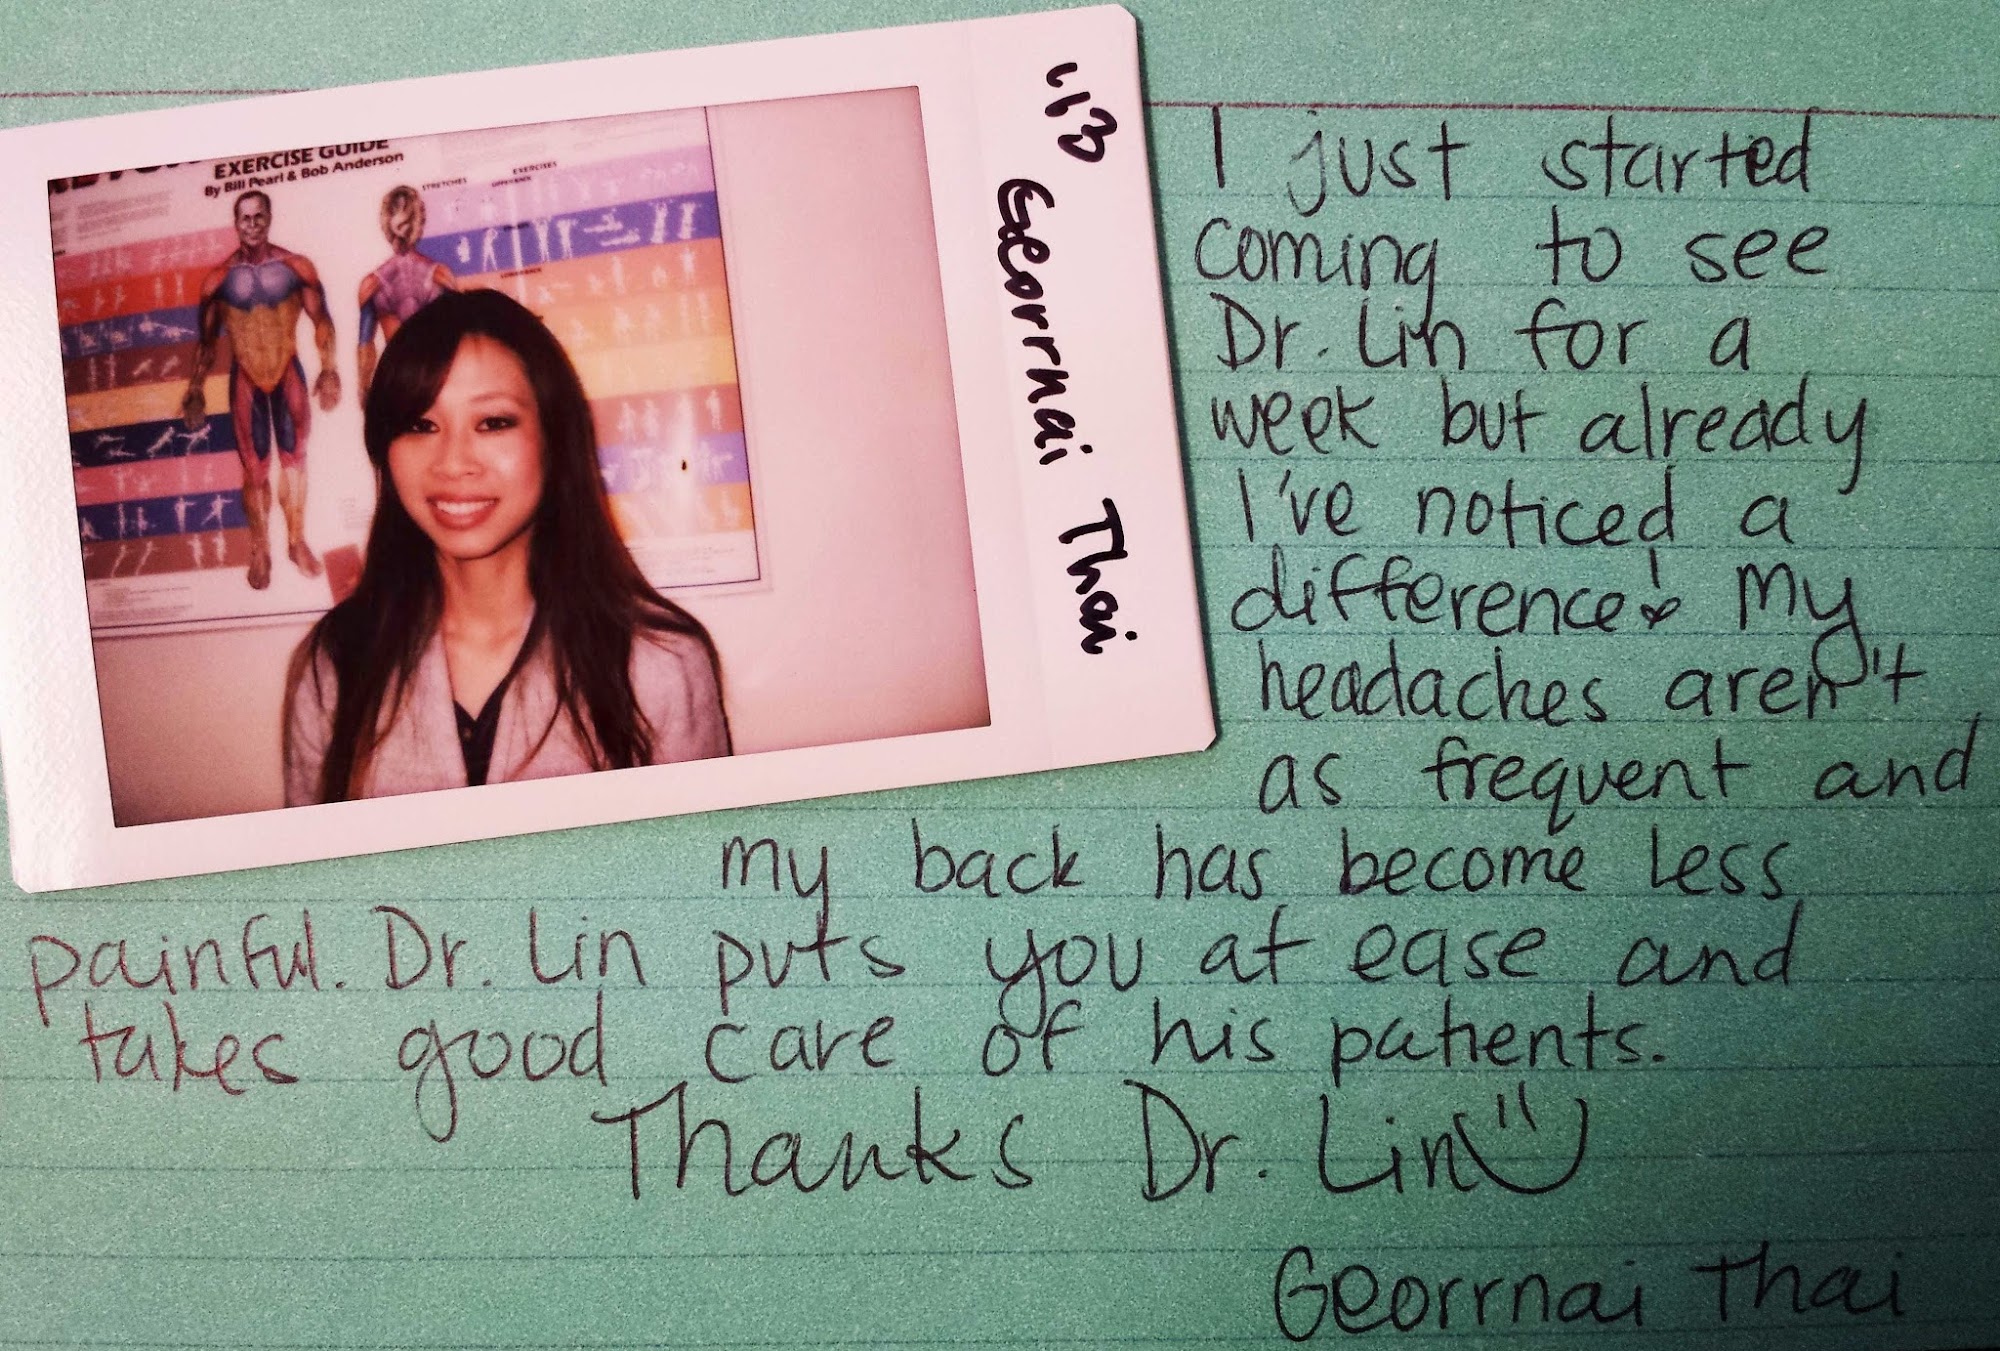 EXERCISE GUIDE
By Bill Pearl & Bob Anderson
STRETCHES
EXERCISES
UPPER BACK
'13 Georrnai Thai
I just started
coming to see
Dr. Lin for a
week but already
I've noticed a
difference! My
headaches aren't
as frequent and
my back has become less
painful. Dr. Lin puts you at ease and
takes good care of his patients.
Thanks Dr. Lin
Georrnai Thai